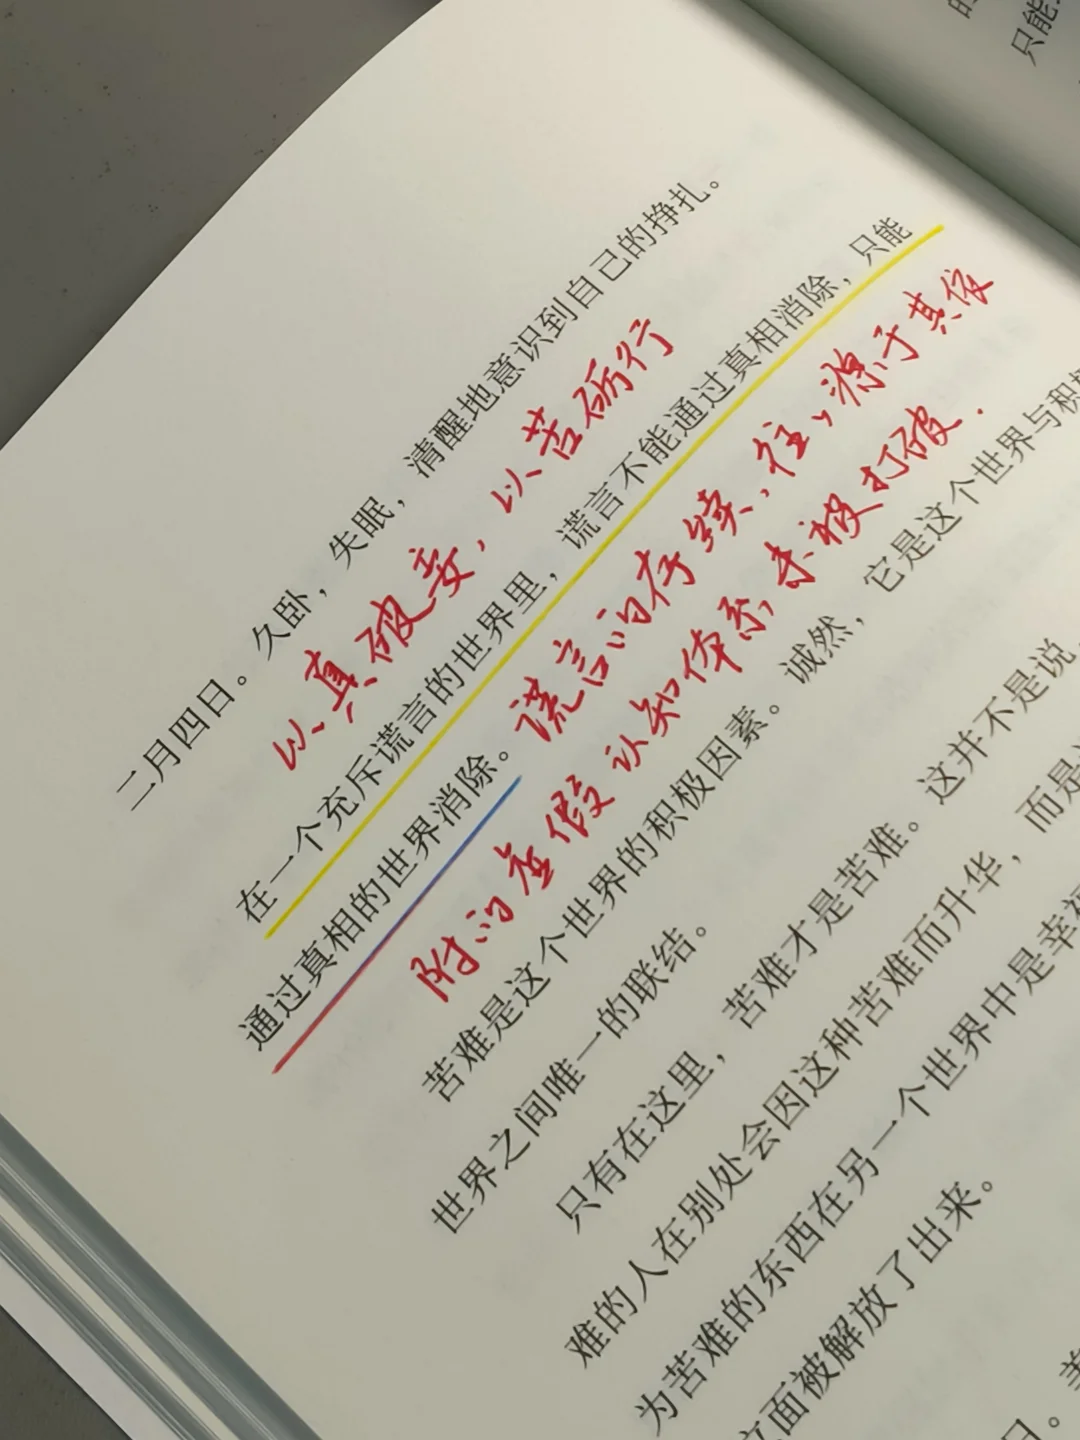 只能
二月四日。久卧，失眠，清醒地意识到自己的挣扎。
以真破妄，以苦砺行
在一个充斥谎言的世界里，谎言不能通过真相消除，只能
通过真相的世界消除。
谎言的存续，往往源于其依
附的虚假认知体系未被打破.
苦难是这个世界的积极因素。诚然，它是这个世界与积
世界之间唯一的联结。
只有在这里，苦难才是苦难。这并不是说，
难的人在别处会因这种苦难而升华，而是
为苦难的东西在另一个世界中是幸福
立面被解放了出来。
日。善